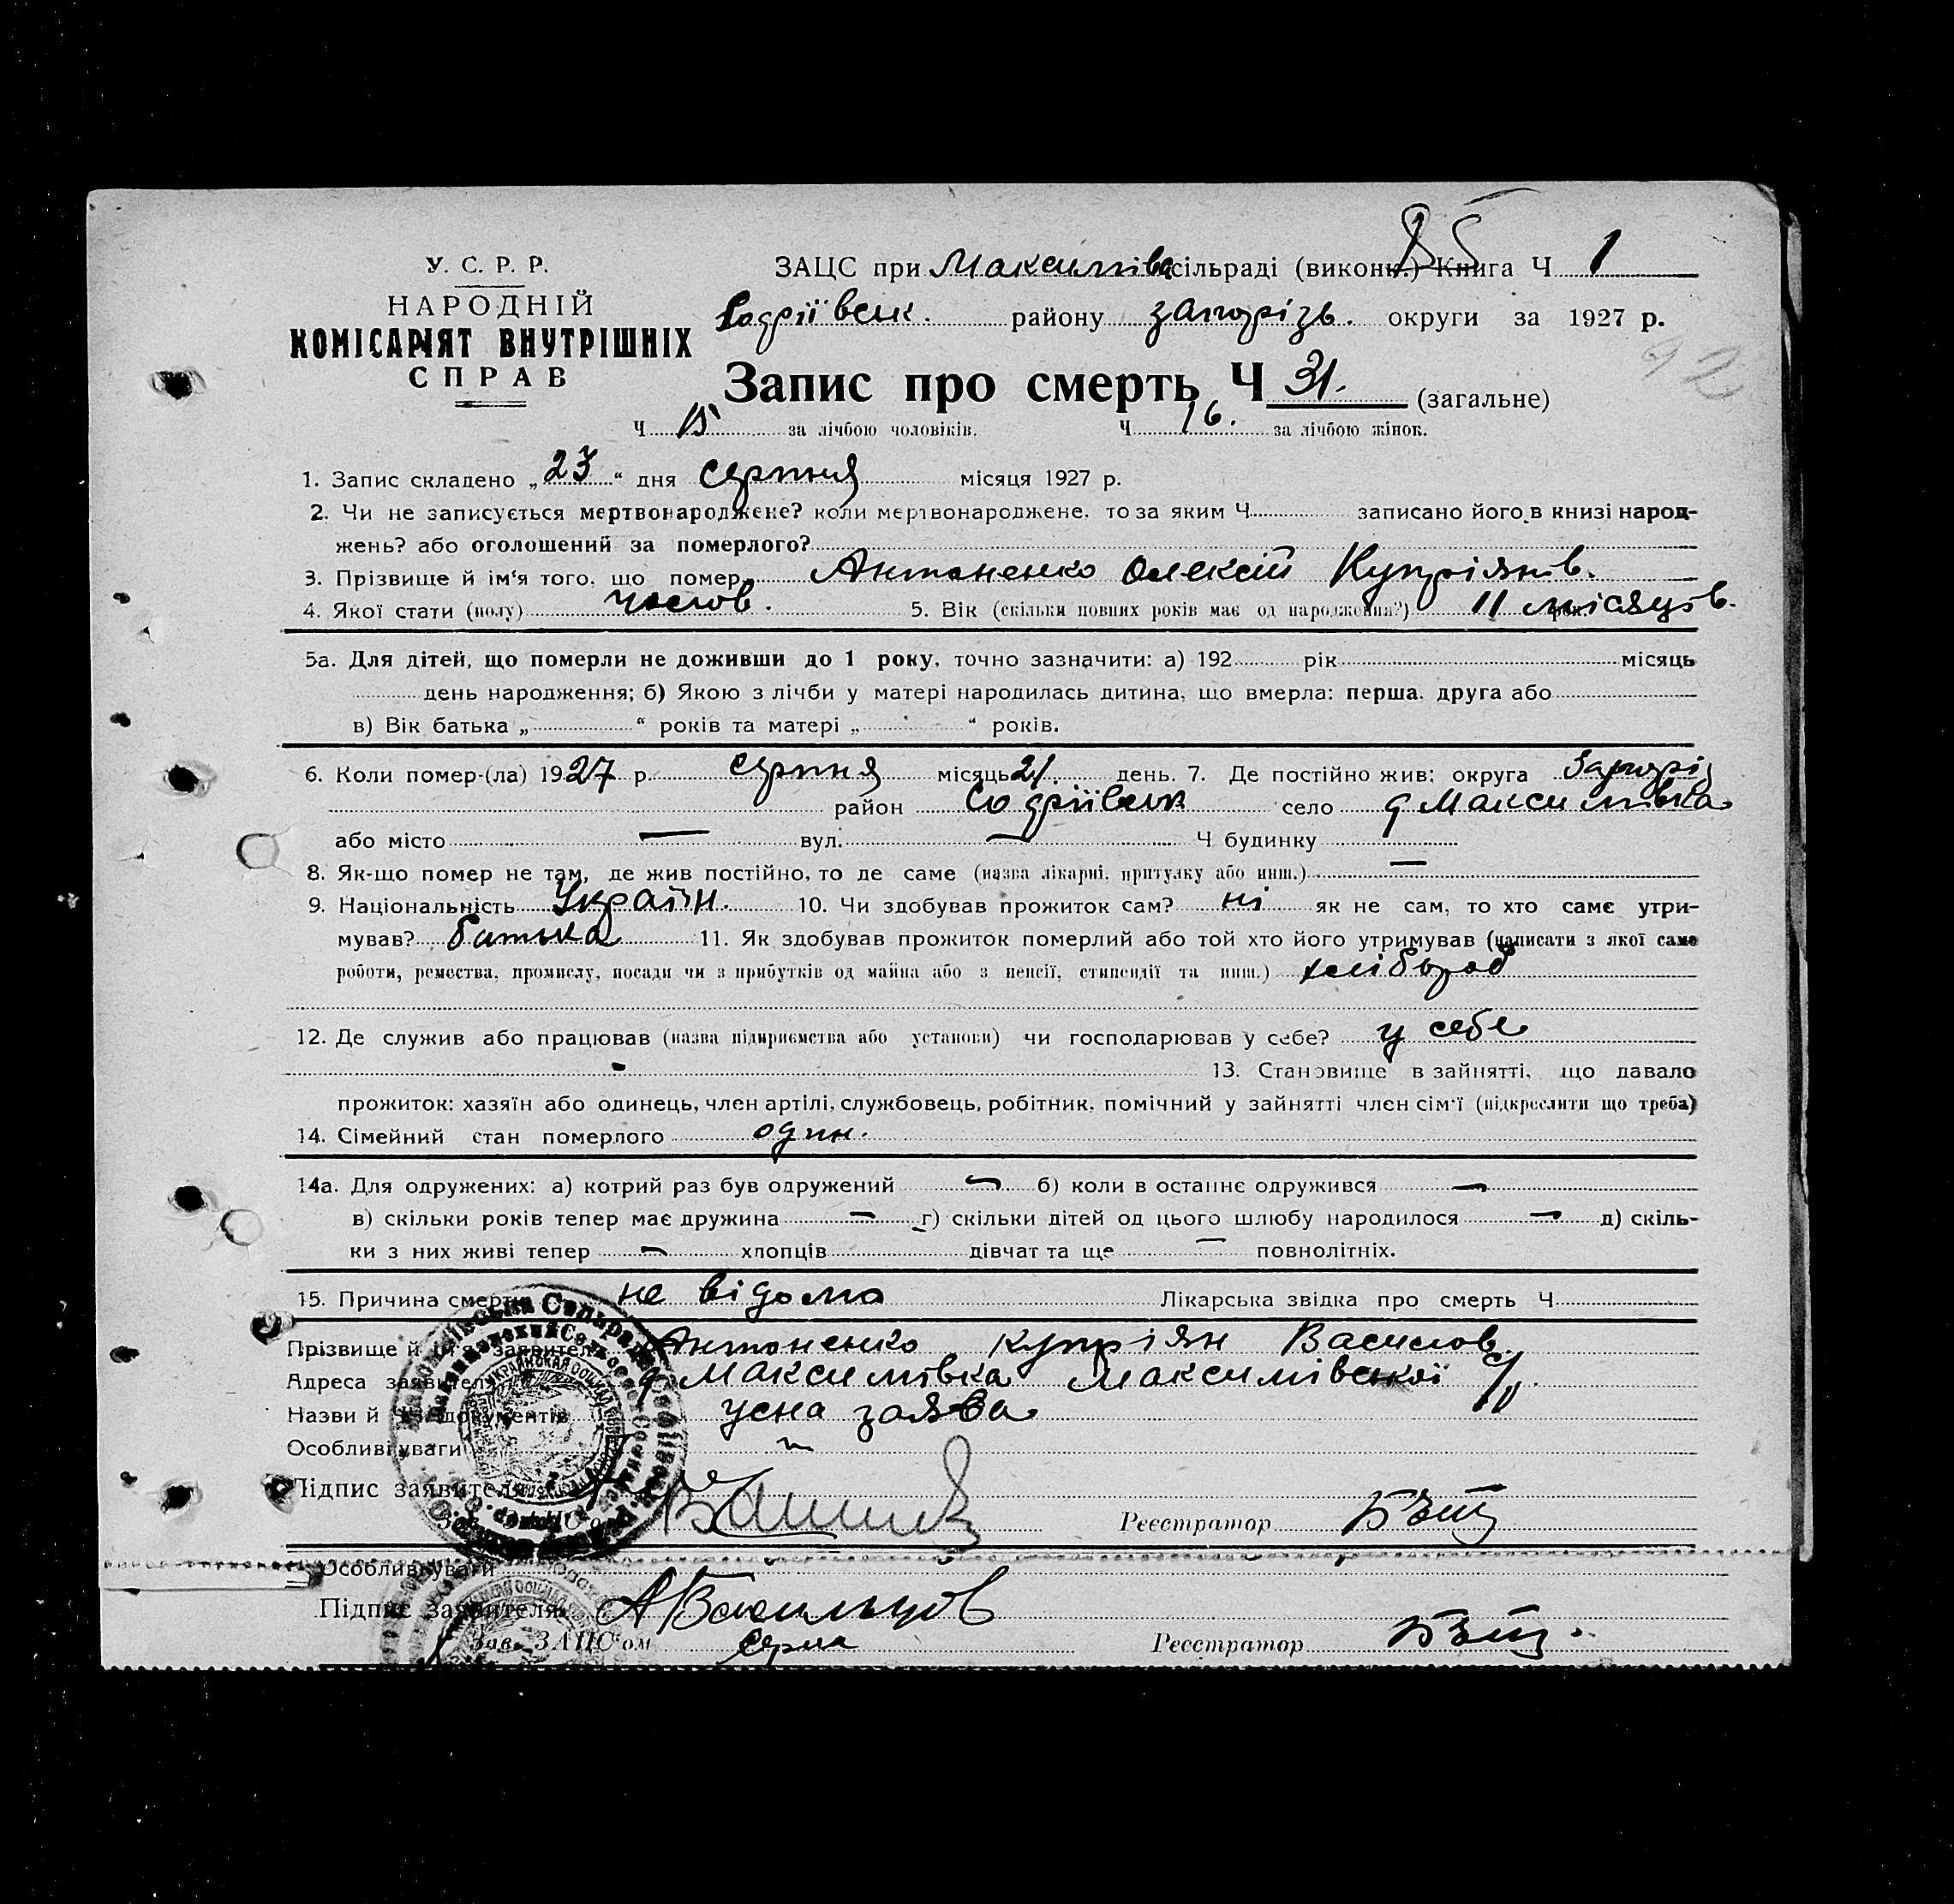 У. С. Р. Р.
НАРОДНІЙ
КОМІСАРІЯТ ВНУТРІШНІХ
СПРАВ
ЗАЦС при Максимівс сільраді (виконк.) Книга Ч 1
Софіївськ. району Запорізь. округи за 1927 р.
92
Запис про смерть Ч 31. (загальне)
Ч 15 за лічбою чоловіків. Ч 16. за лічбою жінок.
1. Запис складено „23“ дня серпня місяця 1927 р.
2. Чи не записується мертвонароджене? коли мертвонароджене, то за яким Ч записано його в книзі народ-
жень? або оголошений за померлого?
3. Прізвище й ім'я того, що помер Антоненко Олексій Купріянів.
4. Якої стати (полу) чолов. 5. Вік (скільки повних років має од народження?) 11 місяців.
5а. Для дітей, що померли не доживши до 1 року, точно зазначити: а) 192 рік місяць
день народження; б) Якою з лічби у матері народилась дитина, що вмерла: перша, друга або
в) Вік батька „ “ років та матері „ “ років.
6. Коли помер-(ла) 1927 р. серпня місяць 21. день. 7. Де постійно жив: округа Запоріз
район Софіївськ село д Максимівка
або місто — вул. — Ч будинку
8. Як-що помер не там, де жив постійно, то де саме (назва лікарні, притулку або инш.) —
9. Національність Україн. 10. Чи здобував прожиток сам? ні як не сам, то хто саме утри-
мував? батька 11. Як здобував прожиток померлий або той хто його утримував (написати з якої саме
роботи, ремества, промислу, посади чи з прибутків од майна або з пенсії, стипендії та инш.) хлібороб
12. Де служив або працював (назва підприємства або установи) чи господарював у себе? у себе
13. Становище в зайнятті, що давало
прожиток: хазяїн або одинець, член артілі, службовець, робітник, помічний у зайнятті член сім'ї (підкреслити що треба)
14. Сімейний стан померлого один.
14а. Для одружених: а) котрий раз був одружений — б) коли в останнє одружився —
в) скільки років тепер має дружина — г) скільки дітей од цього шлюбу народилося — д) скіль-
ки з них живі тепер — хлопців дівчат та ще — повнолітніх.
15. Причина смерти не відома Лікарська звідка про смерть Ч
Прізвище й ім'я заявителя Антоненко Купріян Васильов.
Адреса заявителя д Максимівка Максимівської с/р.
Назви й Ч документів усна заява
Особливі уваги
Підпис заявителя
Зав. ЗАЦС'ом Реєстратор
Особливі уваги
Підпис заявителя
Зав. ЗАЦС'ом Реєстратор